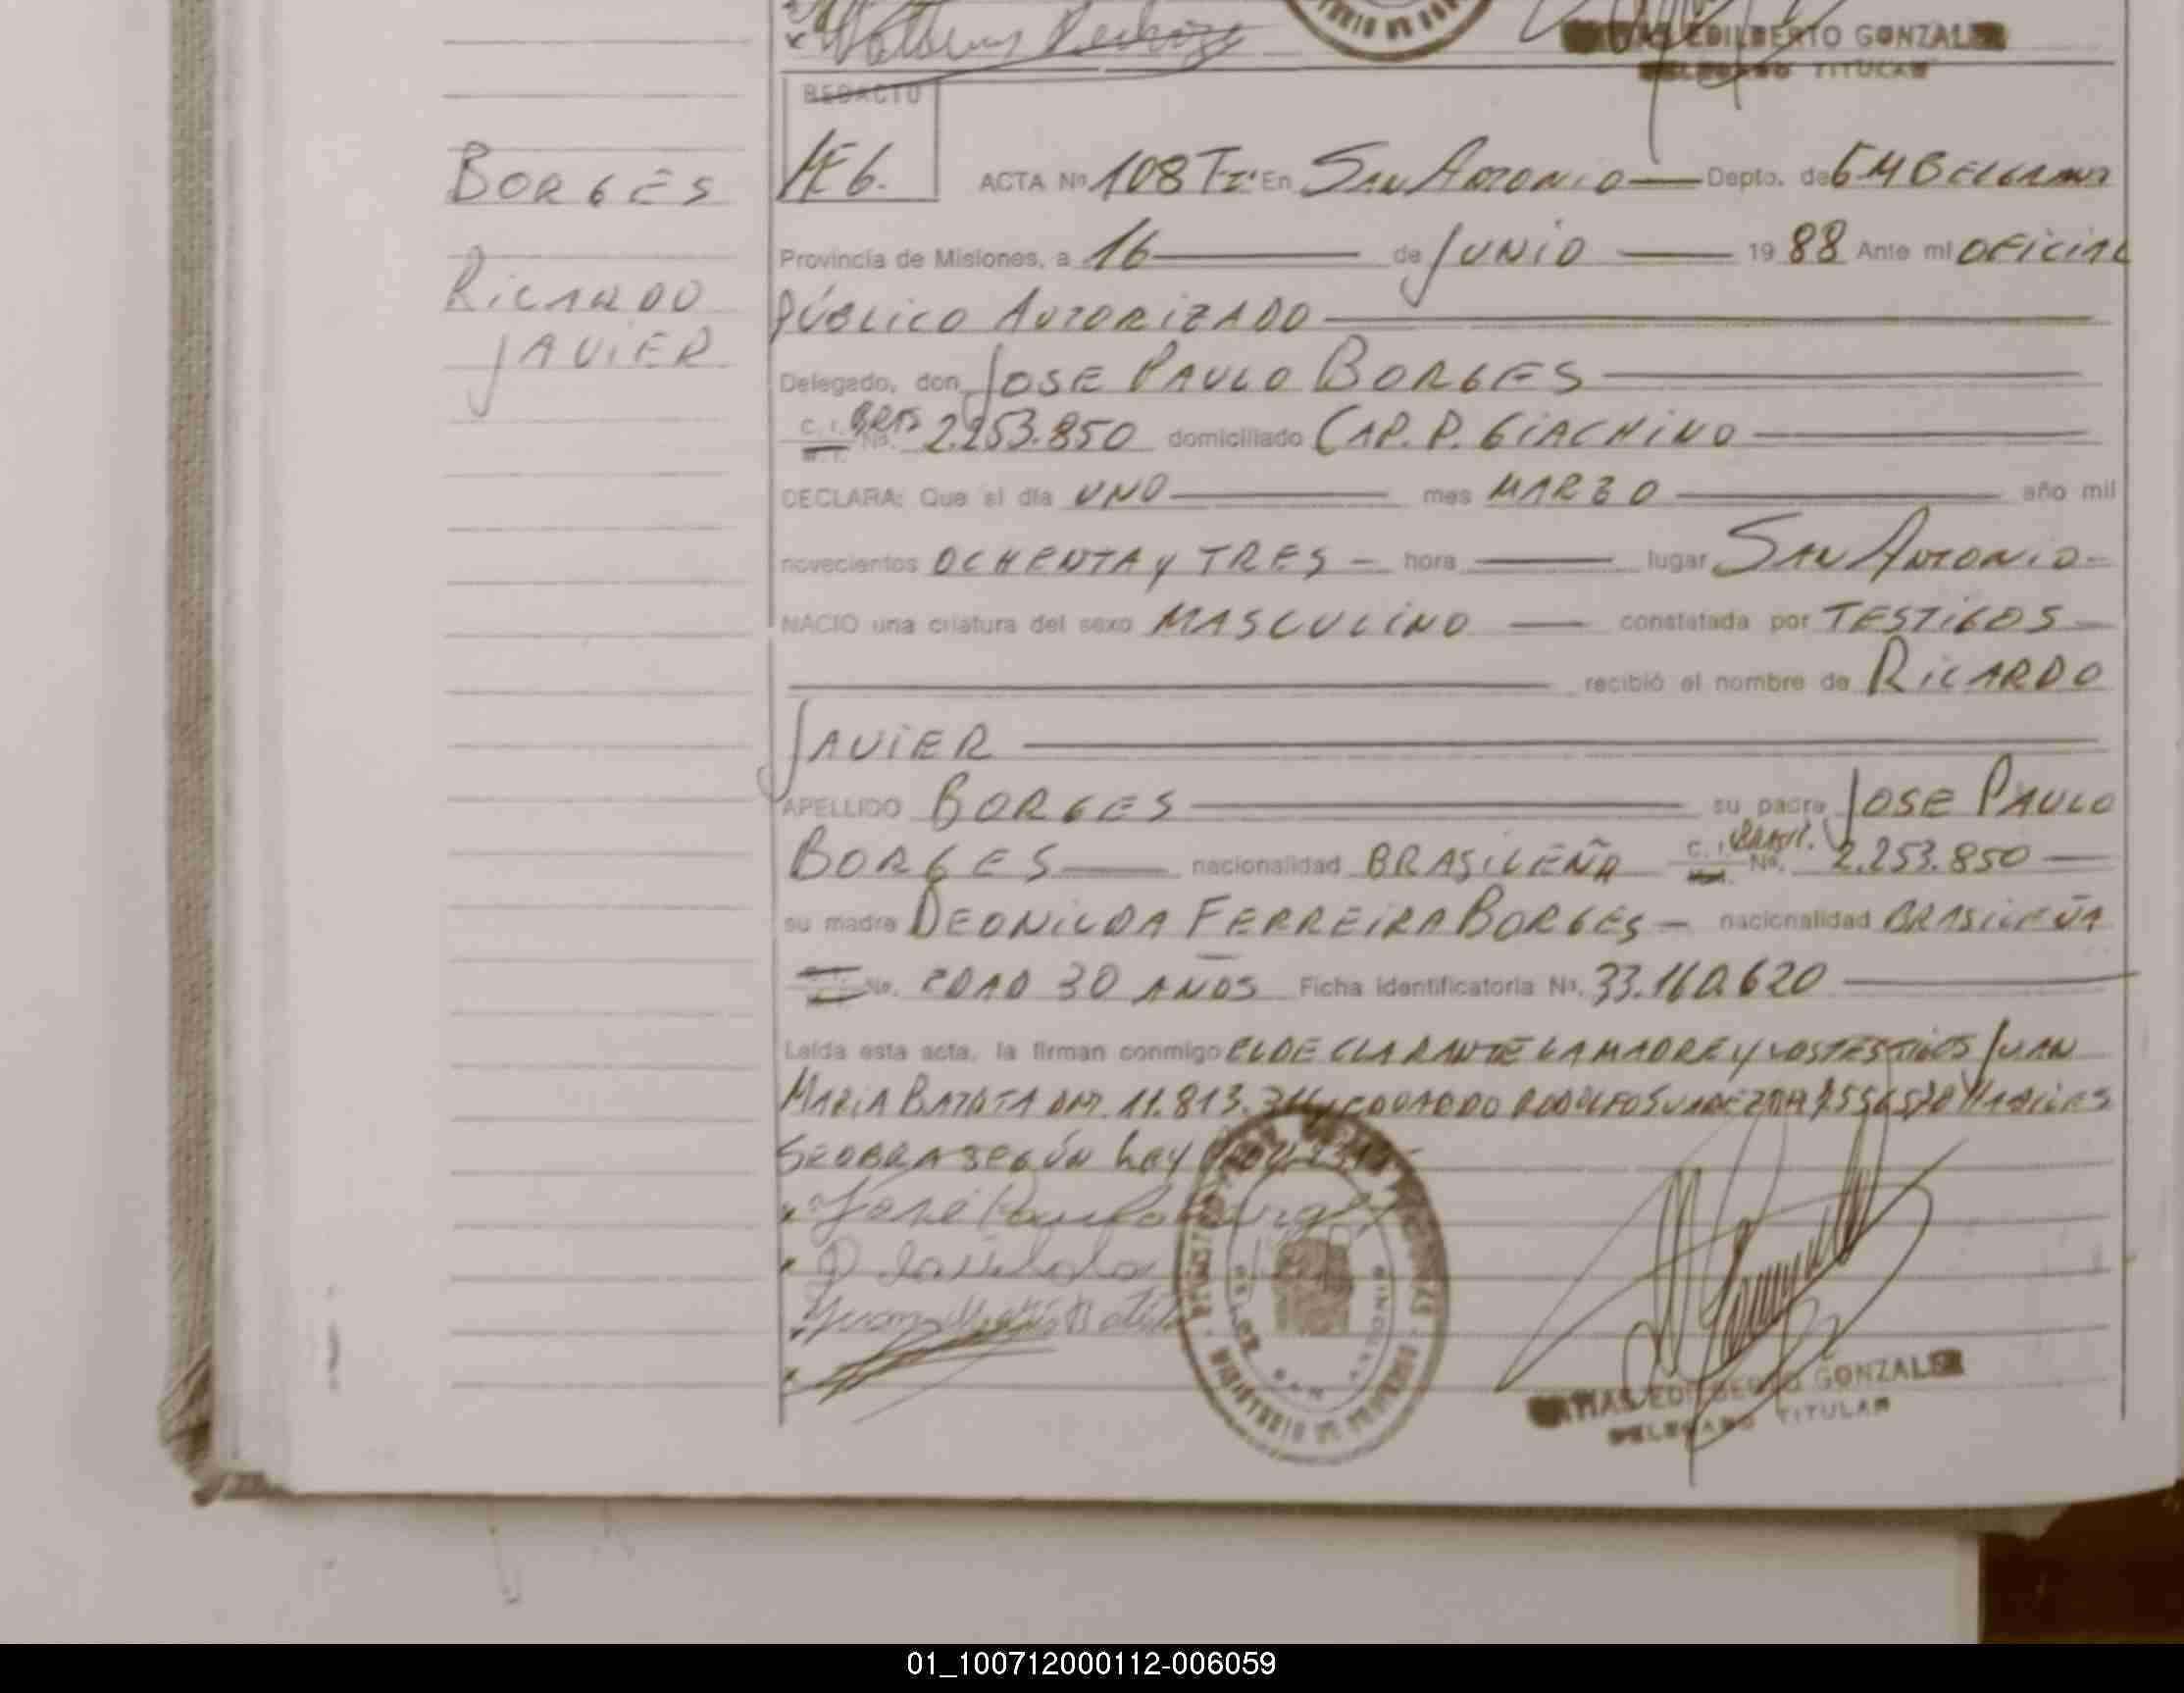 EDILBERTO GONZALEZ
DELEGADO TITULAR
REDACTO
ACTA Nº 108 Tº I En SAN ANTONIO — Depto. de G M BELGRANO
BORGES
Provincia de Misiones, a 16 — de JUNIO — 19 88 Ante mí OFICIAL
RICARDO
PÚBLICO AUTORIZADO —
JAVIER
Delegado, don JOSE PAULO BORGES —
C. I. BRAS Nº. 2.253.850 domiciliado CAP. P. GIACHINO —
DECLARA: Que el día UNO — mes MARZO — año mil
novecientos OCHENTA y TRES — hora — lugar SAN ANTONIO —
NACIO una criatura del sexo MASCULINO — constatada por TESTIGOS —
— recibió el nombre de RICARDO
JAVIER —
APELLIDO BORGES — su padre JOSE PAULO
BORGES — nacionalidad BRASILEÑA C. I. BRASIL. Nº. 2.253.850 —
su madre DEONILDA FERREIRA BORGES — nacionalidad BRASILEÑA
Nº. EDAD 30 AÑOS Ficha identificatoria Nº. 33.160.620 —
Leída esta acta, la firman conmigo EL DECLARANTE LA MADRE Y LOS TESTIGOS JUAN
MARIA BATISTA DNI. 11.813. EDUARDO RODOLFO SUAREZ
SE OBRA SEGÚN LEY
José Paulo Borges
Juan Maria Batista
SAN ANTONIO
MISIONES
MINISTERIO DE GOBIERNO
MATIAS EDILBERTO GONZALEZ
DELEGADO TITULAR
01_100712000112-006059